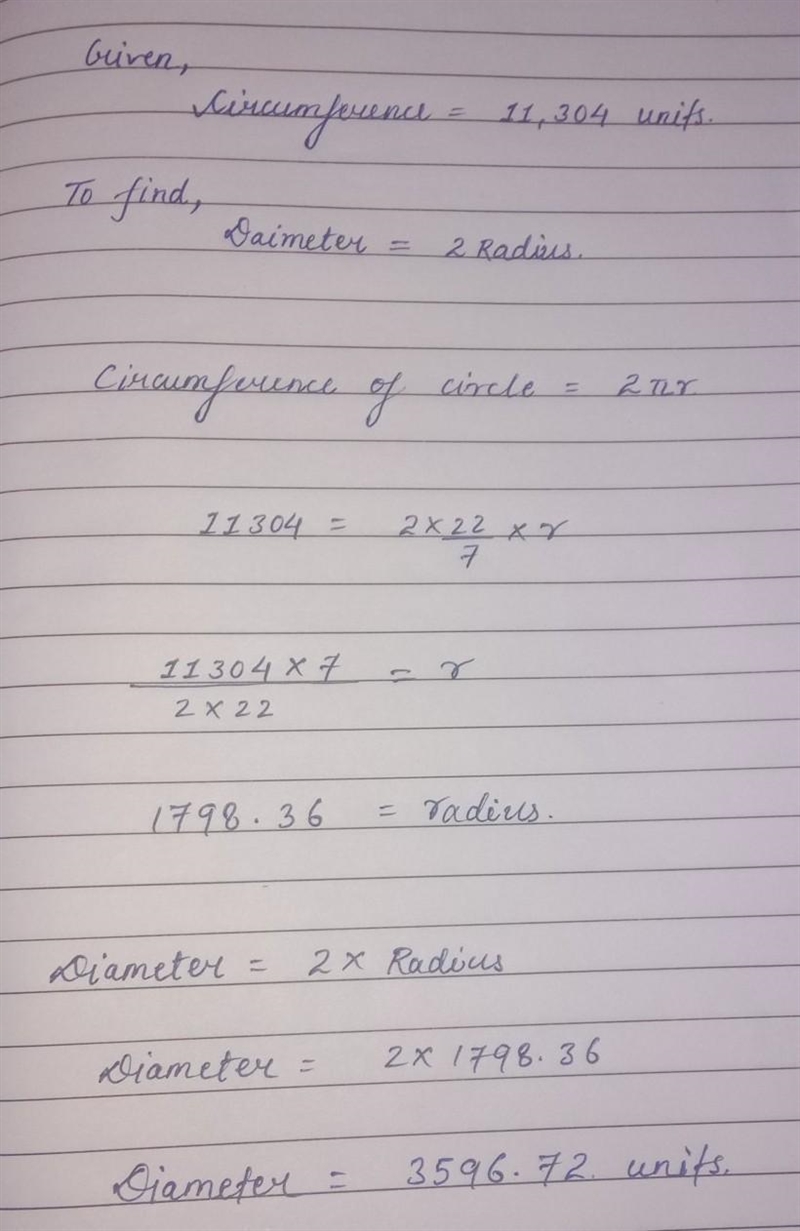 Given,
Circumference = 11,304 units.
To find,
Daimeter = 2 Radius.
Circumference of circle = 2πr
11304 = 2 × 22/7 × r
11304 × 7 / 2 × 22 = r
1798.36 = radius.
Diameter = 2 × Radius
Diameter = 2 × 1798.36
Diameter = 3596.72 units.